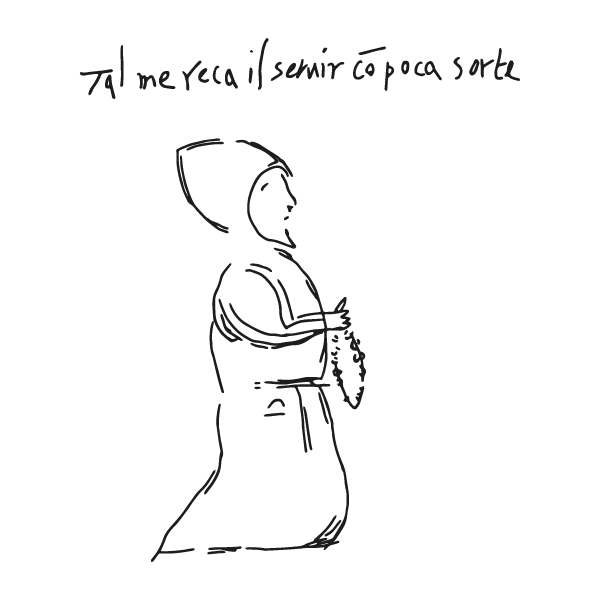 Tal me reca il seruir cō poca sorte